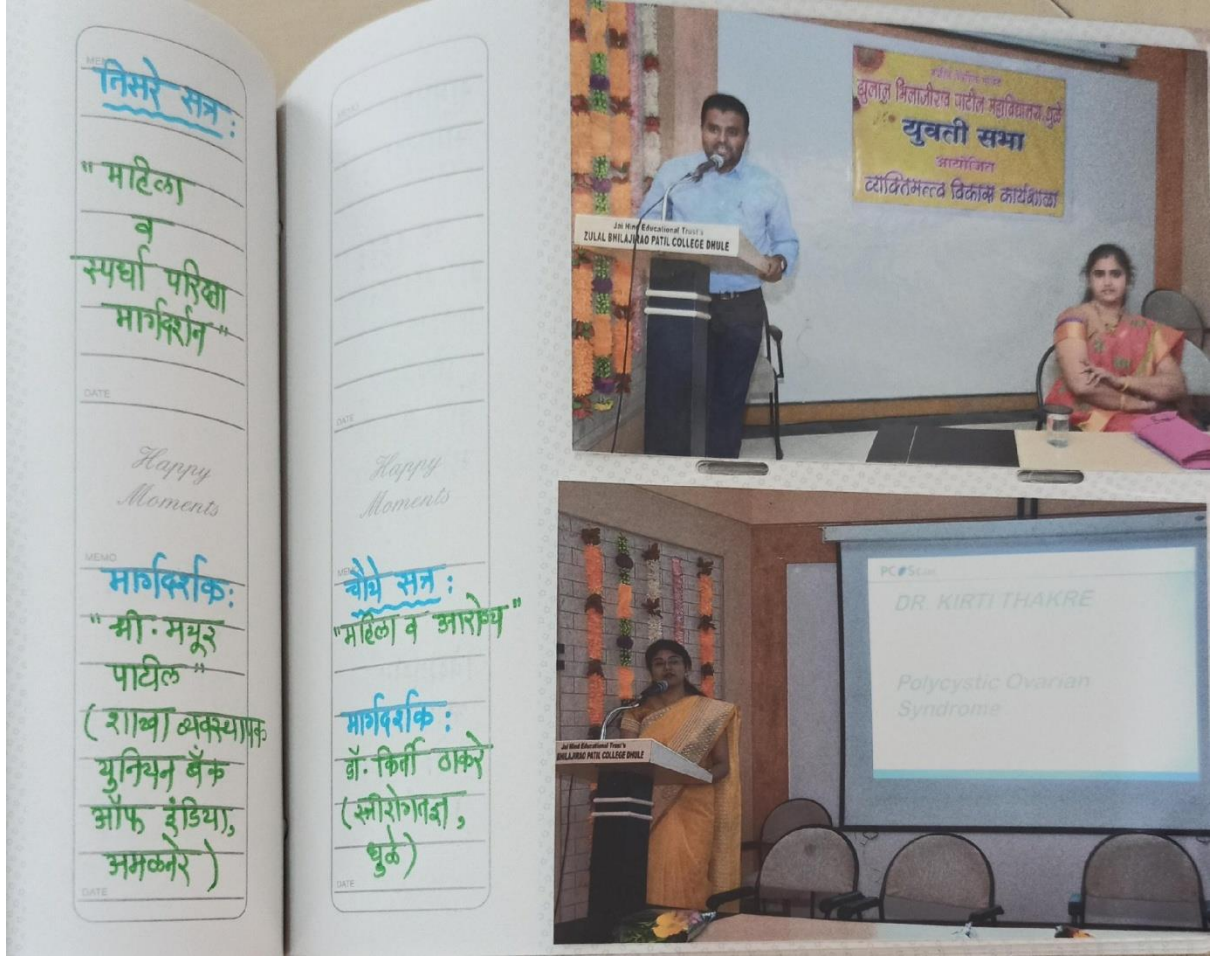 MEMO
तिसरे सत्र :
"महिला
व
स्पर्धा परिक्षा
मार्गदर्शन"
DATE
Happy
Moments
MEMO
मार्गदर्शक:
"श्री. मयूर
पाटील"
(शाखा व्यवस्थापक
युनियन बँक
ऑफ इंडिया,
अमळनेर)
DATE
MEMO
DATE
Happy
Moments
MEMO
चौथे सत्र :
"महिला व आरोग्य"
मार्गदर्शक :
डॉ. किर्ती ठाकरे
(स्त्रीरोगतज्ञ,
धुळे)
DATE
झुलाल भिलाजीराव पाटील महाविद्यालय, धुळे
युवती सभा
आयोजित
व्यक्तिमत्त्व विकास कार्यशाळा
Jai Hind Educational Trust's
ZULAL BHILAJIRAO PATIL COLLEGE DHULE
DR KIRTI THAKRE
Polycystic Ovarian
Syndrome
Jai Hind Educational Trust's
BHILAJIRAO PATIL COLLEGE DHULE